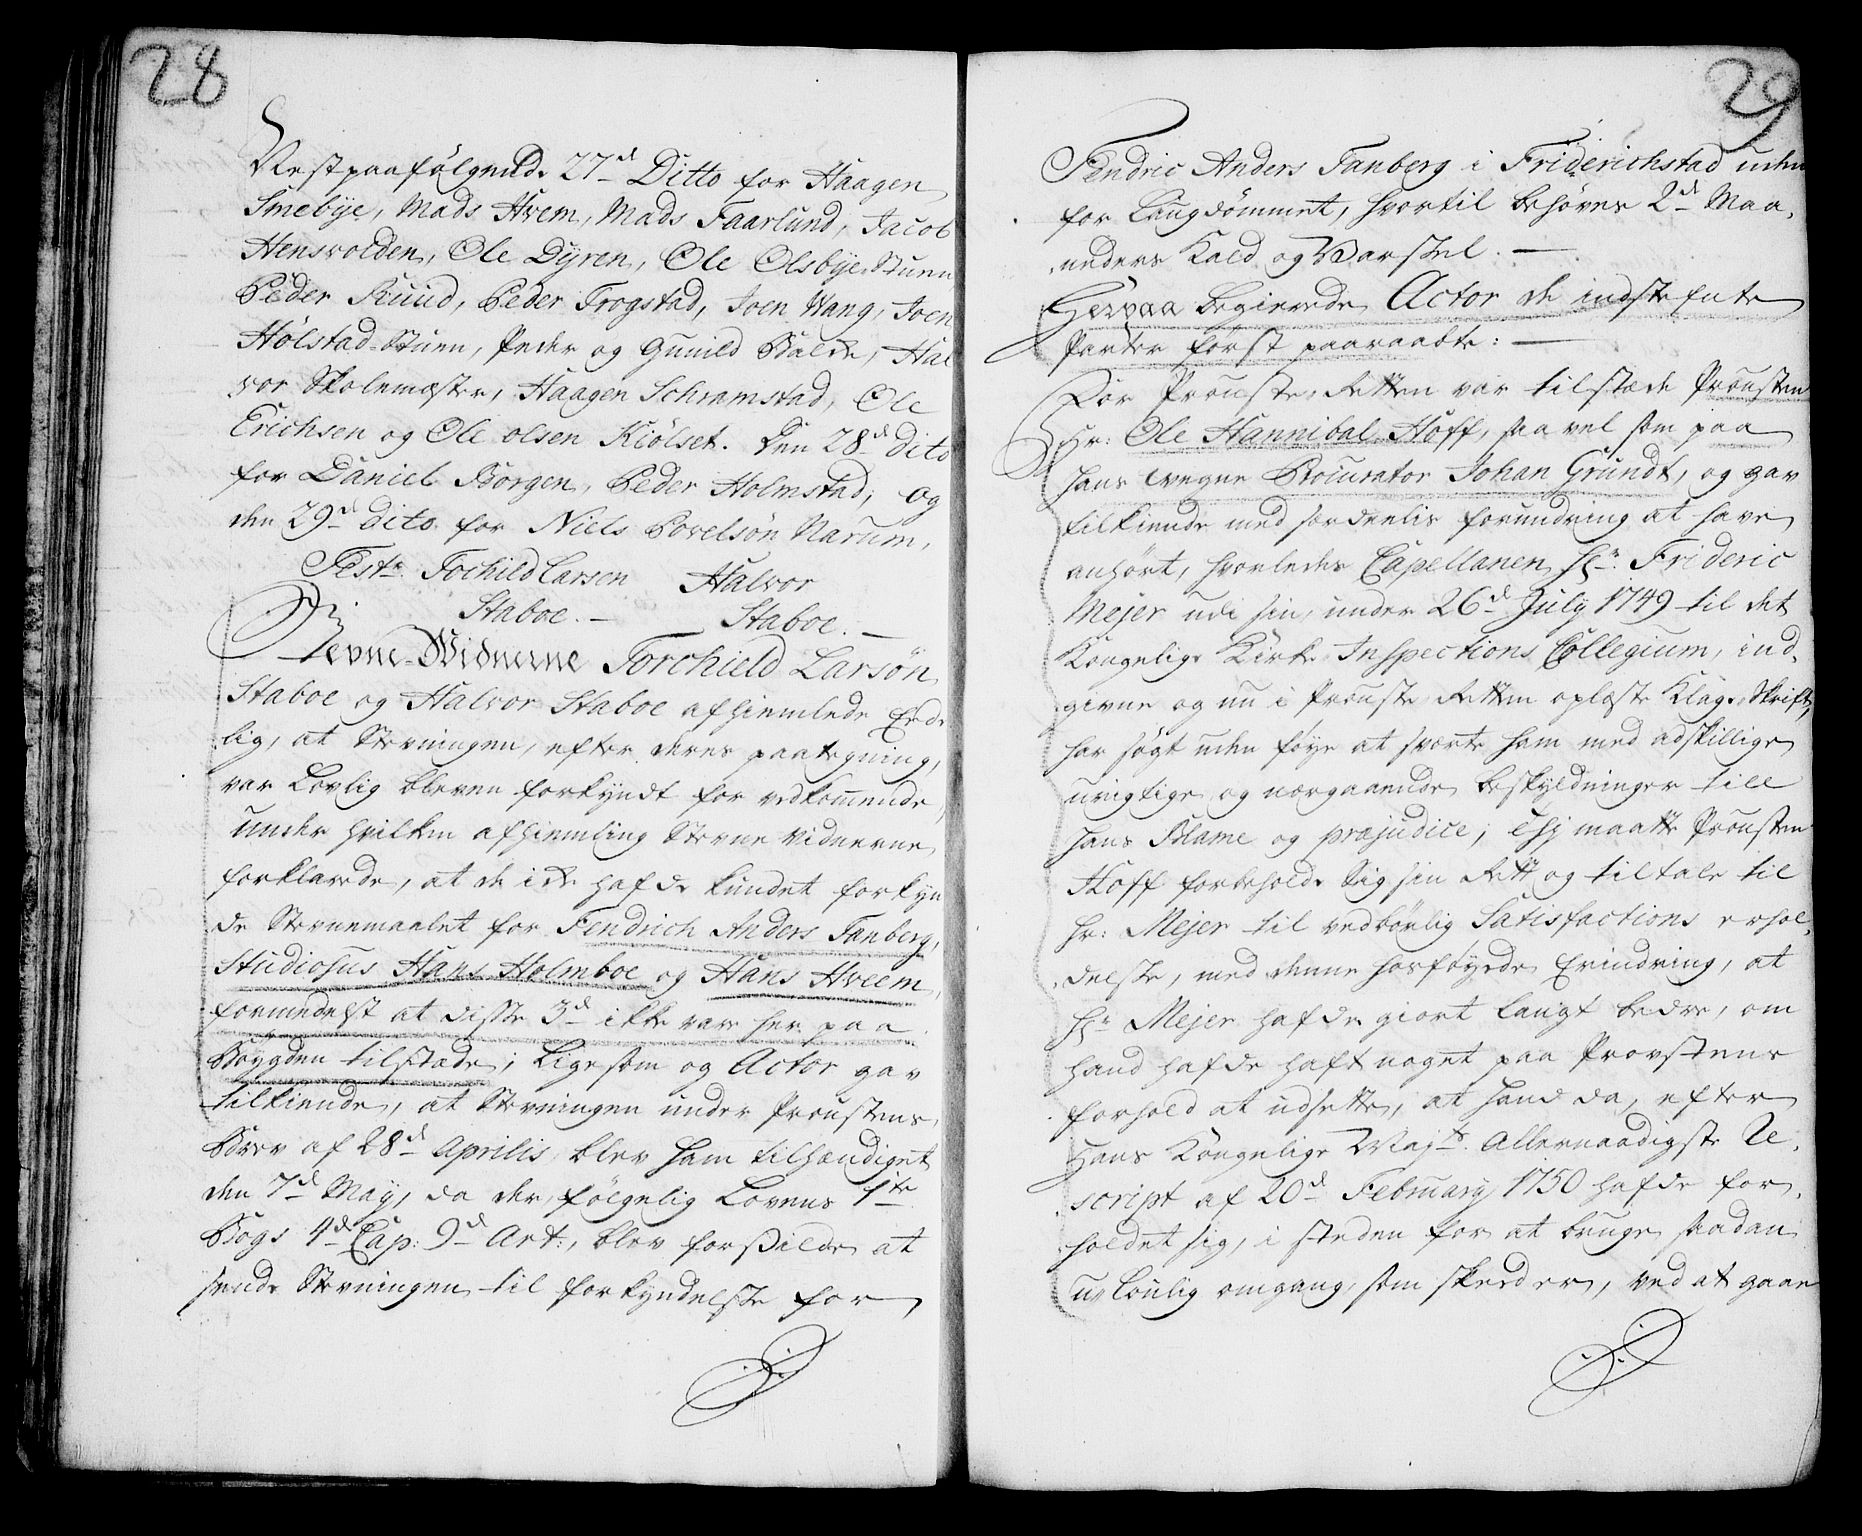 28
Nestpaafölgende 27d Ditto for Haagen
Smebÿe, Mads Hvem, Mads Faarlund, Jacob
Hensvolden, Ole Dÿren, Ole Olsbÿe Stuen
Peder Ruud, Peder Trogstad, Joen Wang, Joen
Hölstad-Stuen, Peder og Gunild Balke, Hal
vor Skolemester, Haagen Schramstad, Ole
Erichsen og Ole olsen Kiölset. Den 28d dito
for Daniel Borgen, Peder Holmstad, og
den 29d dito for Niels Povelsön Narum,
Test: Tochild Larsen Halvor
Staboe. — Staboe. —
Stevne-Widnerne Torchield Larsön
Staboe og Halvor Staboe afhiemlede Eed-
lig, at Stevningen, efter deres paategning,
var Lovlig bleven forkÿndt for vedkommende,
under hvilken afhiemling Stevne Vidnerne
forklarede, at de icke hafde kundet forkÿn
de Stevnemaalet for Fendrich Anders Tanberg,
Studiosus Hans Holmboe og Hans Hveem,
formedelst at disse 3d ikke var her paa
Böÿgden tilstæde; Ligesom og Actor gav
tilkiende, at Stevningen under Proustens
Brev af 28d Aprilis blev ham tilhændiget
den 7d Maÿ, da der, fölgelig Lovens 1te
Bogs 4d Cap: 9d Art:, blev forsilde at
sende Stevningen til forkÿndelse for
29
Fendric Anders Tanberg i Friderichstad uden
for Laugdömmet, hvortil behöves 2d Maa-
neders Kald og Varsel. —
Herpaa begierede Actor de indstefnte
Parter först paaraabte: —
For Prouste-Retten var tilstæde Prousten
Hr: Ole Hannibal Hoff, saa vel som paa
hans vegne Procurator Johan Grundt, og gav
tilkiende med sorderlig forundring at have
anhört, hvorledes Capellanen Hr: Frideric
Mejer udi sin, under 26d Julÿ 1749 til det
Kongelige Kirke Inspections Collegium, ind-
givne og nu i Prouste Retten oplæste Klage-Skrift,
har sögt uden föÿe at sverte ham med adskillige
urigtige og nærgaaende beskÿldninger till
hans Blame og præjudice; Thj maatte Prousten
Hoff forbeholde Sig sin Rett og tiltale til
Hr: Mejer til vedbörlig Satisfactions erhol-
delse, med denne hosföÿede Erindring, at
Hr: Mejer hafde giort langt bedre, om
hand hafde haft noget paa Provstens
forhold at udsette, at hand da, efter
Hans Kongelige Majts: Allernaadigste Re-
script af 20d Februarÿ 1750 hafde for-
holdet sig, i steden for at bruge saadan
u-Loulig omgang, som skeed er, ved at gaae